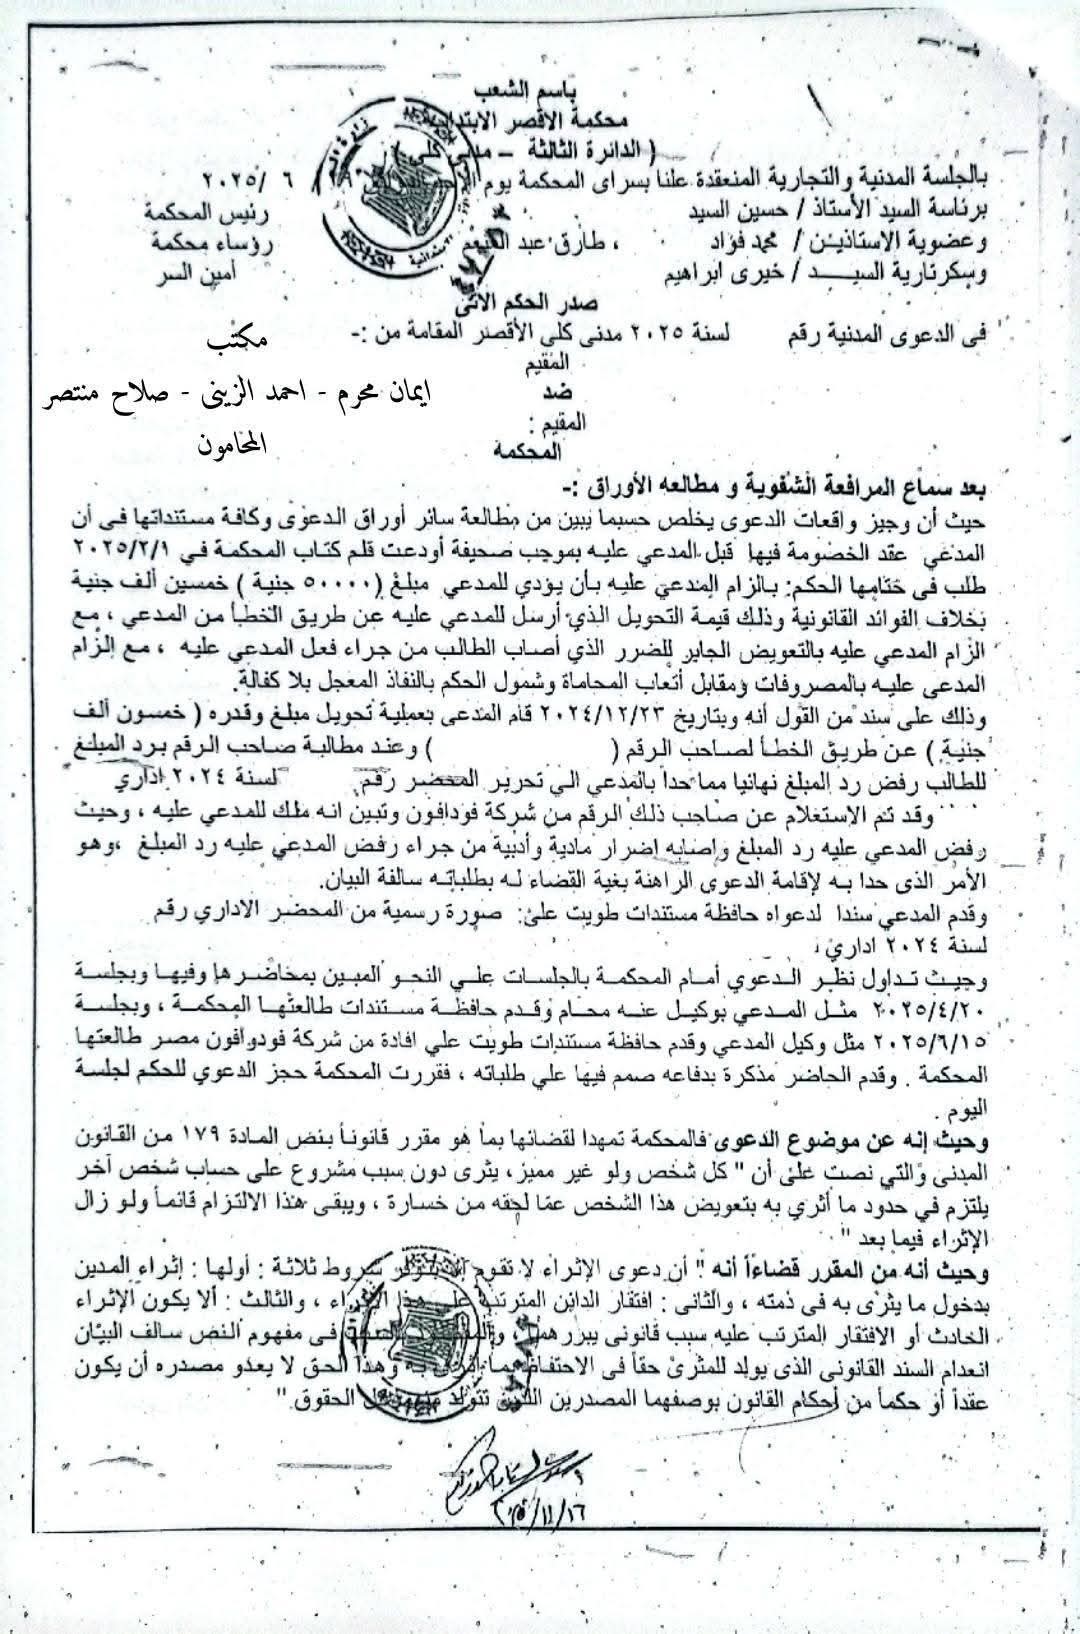 باسم الشعب
محكمة الاقصر الابتدائية
( الدائرة الثالثة – مدنى كلى )
بالجلسة المدنية والتجارية المنعقدة علنا بسراى المحكمة يوم ٦ /٢٠٢٥
برئاسة السيد الأستاذ / حسين السيد رئيس المحكمة
وعضوية الاستاذين / محمد فؤاد ، طارق عبد النعيم رؤساء محكمة
وسكرتارية السيد / خيرى ابراهيم أمين السر
صدر الحكم الاتى
فى الدعوى المدنية رقم لسنة ٢٠٢٥ مدنى كلى الأقصر المقامة من :-
مكتب
المقيم
ضد
ايمان محرم - احمد الزينى - صلاح منتصر
المقيم :
المحامون
المحكمة
بعد سماع المرافعة الشفوية و مطالعه الأوراق :-
حيث أن وجيز واقعات الدعوى يخلص حسبما يبين من مطالعة سائر أوراق الدعوى وكافة مستنداتها فى أن
المدعي عقد الخصومة فيها قبل المدعي عليه بموجب صحيفة أودعت قلم كتاب المحكمة في ٢٠٢٥/٢/١
طلب فى ختامها الحكم: بالزام المدعي عليه بأن يؤدي للمدعي مبلغ (٥٠٠٠٠ جنية ) خمسين ألف جنية
بخلاف الفوائد القانونية وذلك قيمة التحويل الذي أرسل للمدعي عليه عن طريق الخطأ من المدعي ، مع
الزام المدعي عليه بالتعويض الجابر للضرر الذي أصاب الطالب من جراء فعل المدعي عليه ، مع إلزام
المدعى عليه بالمصروفات ومقابل أتعاب المحاماة وشمول الحكم بالنفاذ المعجل بلا كفالة.
وذلك على سند من القول أنه وبتاريخ ٢٠٢٤/١٢/٢٣ قام المدعى بعملية تحويل مبلغ وقدره ( خمسون ألف
جنية ) عن طريق الخطأ لصاحب الرقم ( ) وعند مطالبة صاحب الرقم برد المبلغ
للطالب رفض رد المبلغ نهائيا مما حدا بالمدعي الي تحرير المحضر رقم لسنة ٢٠٢٤ إداري
وقد تم الاستعلام عن صاحب ذلك الرقم من شركة فودافون وتبين انه ملك للمدعي عليه ، وحيث
رفض المدعي عليه رد المبلغ واصابه اضرار مادية وأدبية من جراء رفض المدعي عليه رد المبلغ ،وهو
الأمر الذى حدا به لإقامة الدعوى الراهنة بغية القضاء له بطلباته سالفة البيان.
وقدم المدعي سندا لدعواه حافظة مستندات طويت على: صورة رسمية من المحضر الاداري رقم
لسنة ٢٠٢٤ اداري ،
وحيث تداول نظر الدعوي أمام المحكمة بالجلسات علي النحو المبين بمحاضرها وفيها وبجلسة
٢٠٢٥/٤/٢٠ مثل المدعي بوكيل عنه محام وقدم حافظة مستندات طالعتها المحكمة ، وبجلسة
٢٠٢٥/٦/١٥ مثل وكيل المدعي وقدم حافظة مستندات طويت علي افادة من شركة فودوافون مصر طالعتها
المحكمة . وقدم الحاضر مذكرة بدفاعه صمم فيها علي طلباته ، فقررت المحكمة حجز الدعوي للحكم لجلسة
اليوم .
وحيث إنه عن موضوع الدعوى فالمحكمة تمهدا لقضائها بما هو مقرر قانوناً بنص المادة ١٧٩ من القانون
المدنى والتي نصت على أن " كل شخص ولو غير مميز، يثرى دون سبب مشروع على حساب شخص آخر
يلتزم في حدود ما أثري به بتعويض هذا الشخص عما لحقه من خسارة ، ويبقى هذا الالتزام قائماً ولو زال
الإثراء فيما بعد "
وحيث أنه من المقرر قضاءاً أنه " أن دعوى الإثراء لا تقوم إلا بتوافر شروط ثلاثة : أولها : إثراء المدين
بدخول ما يثرى به فى ذمته ، والثانى : افتقار الدائن المترتب على هذا الإثراء ، والثالث : ألا يكون الإثراء
الحادث أو الافتقار المترتب عليه سبب قانونى يبررهما ، فى مفهوم النص سالف البيان
انعدام السند القانونى الذى يولد للمثرى حقاً فى الاحتفاظ بما أثرى به وهذا الحق لا يعدو مصدره أن يكون
عقداً أو حكماً من أحكام القانون بوصفهما المصدرين اللذين تتولد الحقوق "
٢٠٢٥/١١/١٦